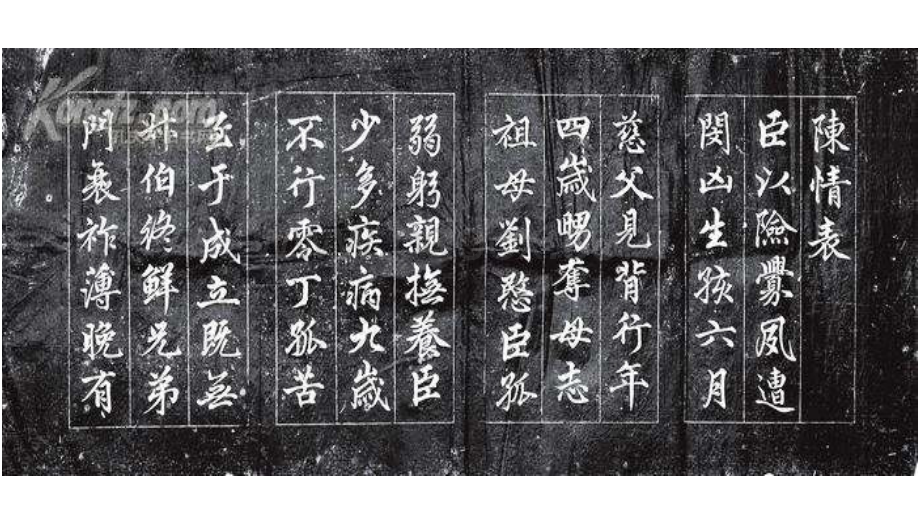 陳情表
臣以險釁夙遭
閔凶生孩六月
慈父見背行年
四歲舅奪母志
祖母劉愍臣孤
弱躬親撫養臣
少多疾病九歲
不行零丁孤苦
至于成立既無
叔伯終鮮兄弟
門衰祚薄晚有
Kongfz.com